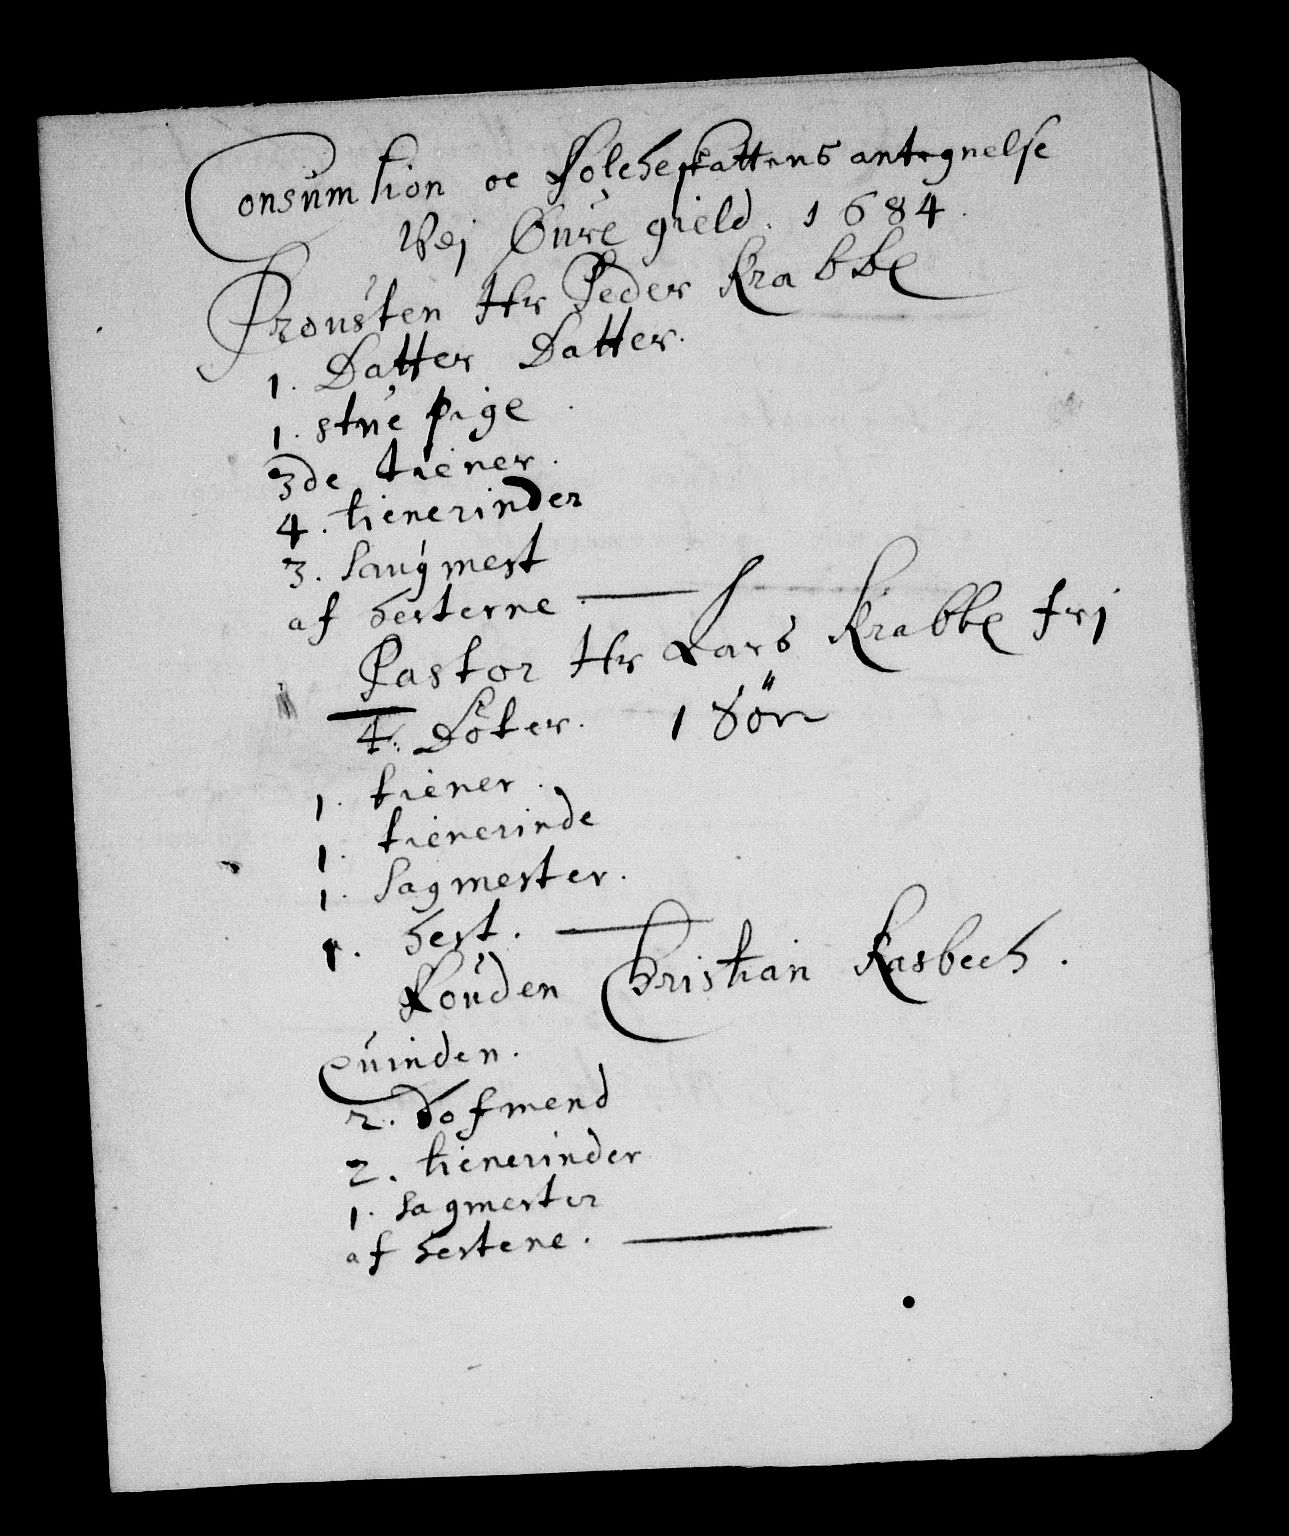 Consumtion oc Folcheskattens antegnelse
Vej Øure gield. 1684.
Prousten Hr Peder Krabbe
1. Datter Datter.
1. stue pige
3de tiener.
4. tienerinder
3. Saugmest
af hesterne.
Pastor Hr Lars Krabbe fri
4. Döter. 1 Sön
1. tiener.
1. tienerinde
1. Sagmester.
1. hest.
Fouden Christian Kasbech.
Quinden.
2. hofmend
2. tienerinder
1. Sagmester
af hestene.